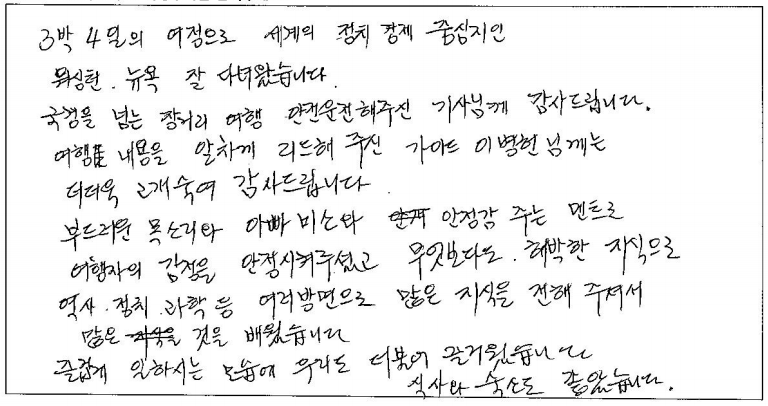 3박 4일의 여정으로 세계의 정치 경제 중심지인
워싱턴. 뉴욕 잘 다녀왔습니다.
국경을 넘는 장거리 여행 안전운전해주신 기사님께 감사드립니다.
여행 내용을 알차게 리드해 주신 가이드 이병헌 님께는
더더욱 고개숙여 감사드립니다.
부드러운 목소리와 아빠 미소와 안정감 주는 멘트로
여행자의 감정을 안정시켜주셨고 무엇보다도. 해박한 지식으로
역사. 정치. 과학 등 여러방면으로 많은 지식을 전해 주셔서
많은 것을 배웠습니다
즐겁게 일하시는 모습에 우리도 더불어 즐거웠습니다
식사와 숙소도 좋았습니다.